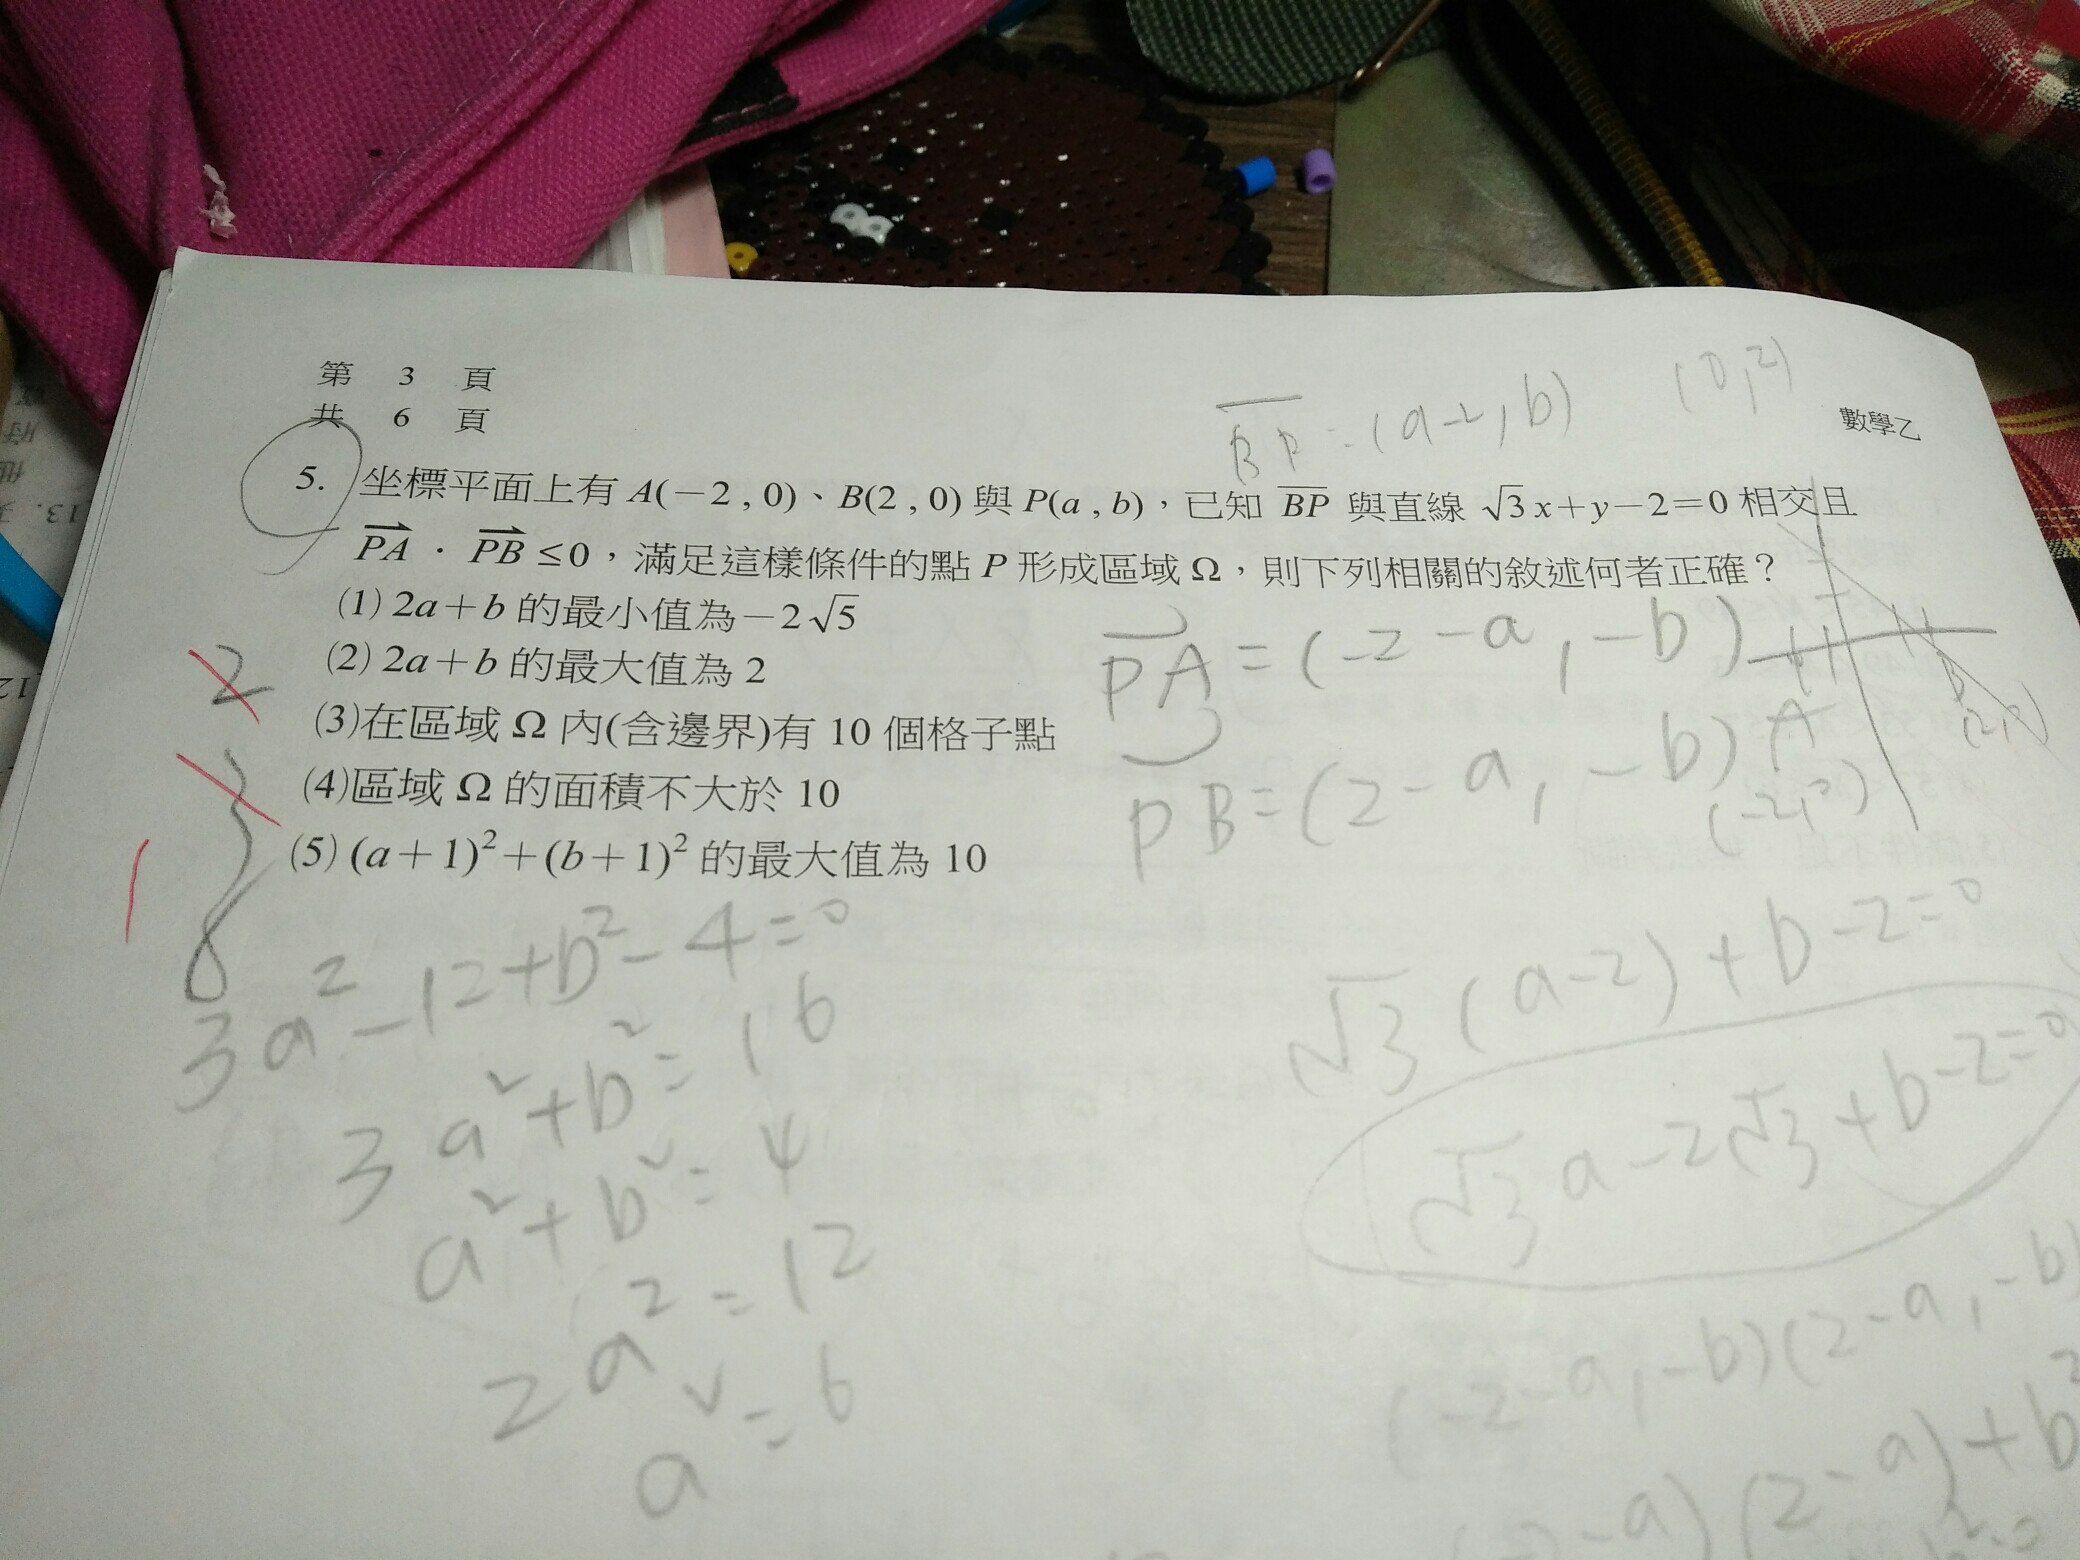 第 3 頁
共 6 頁
數學乙
BP = (a-2, b)
(0, 2)
5. 坐標平面上有 A(−2 , 0)、B(2 , 0) 與 P(a , b),已知 BP 與直線 √3 x+y−2=0 相交且
PA · PB ≤0,滿足這樣條件的點 P 形成區域 Ω,則下列相關的敘述何者正確?
(1) 2a+b 的最小值為−2√5
(2) 2a+b 的最大值為 2
(3)在區域 Ω 內(含邊界)有 10 個格子點
(4)區域 Ω 的面積不大於 10
(5) (a+1)²+(b+1)² 的最大值為 10
2
1
PA = (-2-a, -b)
PB = (2-a, -b)
A
(-2, 0)
B
3a²-12+b²-4=0
3a²+b²=16
a²+b²=4
2a²=12
a²=6
√3(a-2)+b-2=0
√3a-2√3+b-2=0
(-2-a, -b)(2-a, -b)
-a)(2-a)+b²